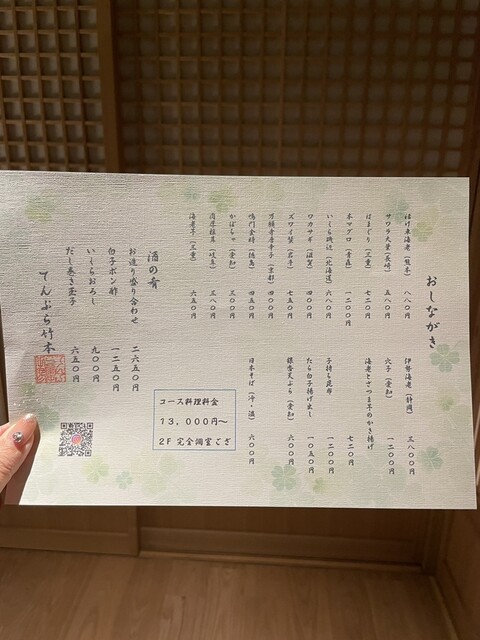 おしながき
活け車海老（熊本）　八八〇円
サワラ大葉（長崎）　五八〇円
はまぐり（三重）　七二〇円
本マグロ（青森）　一二〇〇円
いくら磯辺（北海道）　六八〇円
ワカサギ（滋賀）　四〇〇円
ズワイ蟹（岩手）　七五〇円
万願寺唐辛子（京都）　四〇〇円
鳴門金時（徳島）　四五〇円
かぼちゃ（愛知）　三〇〇円
肉厚椎茸（岐阜）　三八〇円
海老芋（三重）　六五〇円
伊勢海老（静岡）　三八〇〇円
穴子（愛知）　一二〇〇円
海老とさつま芋のかき揚げ　七二〇円
子持ち昆布　一二〇〇円
たら白子揚げ出し　一〇五〇円
銀杏天ぷら（愛知）　六〇〇円
日本そば（冷・温）　六〇〇円
酒の肴
お造り盛り合わせ　二六五〇円
白子ポン酢　一二五〇円
いくらおろし　九〇〇円
だし巻き玉子　六五〇円
てんぷら竹本
コース料理料金
13，000円～
2F 完全個室ござ